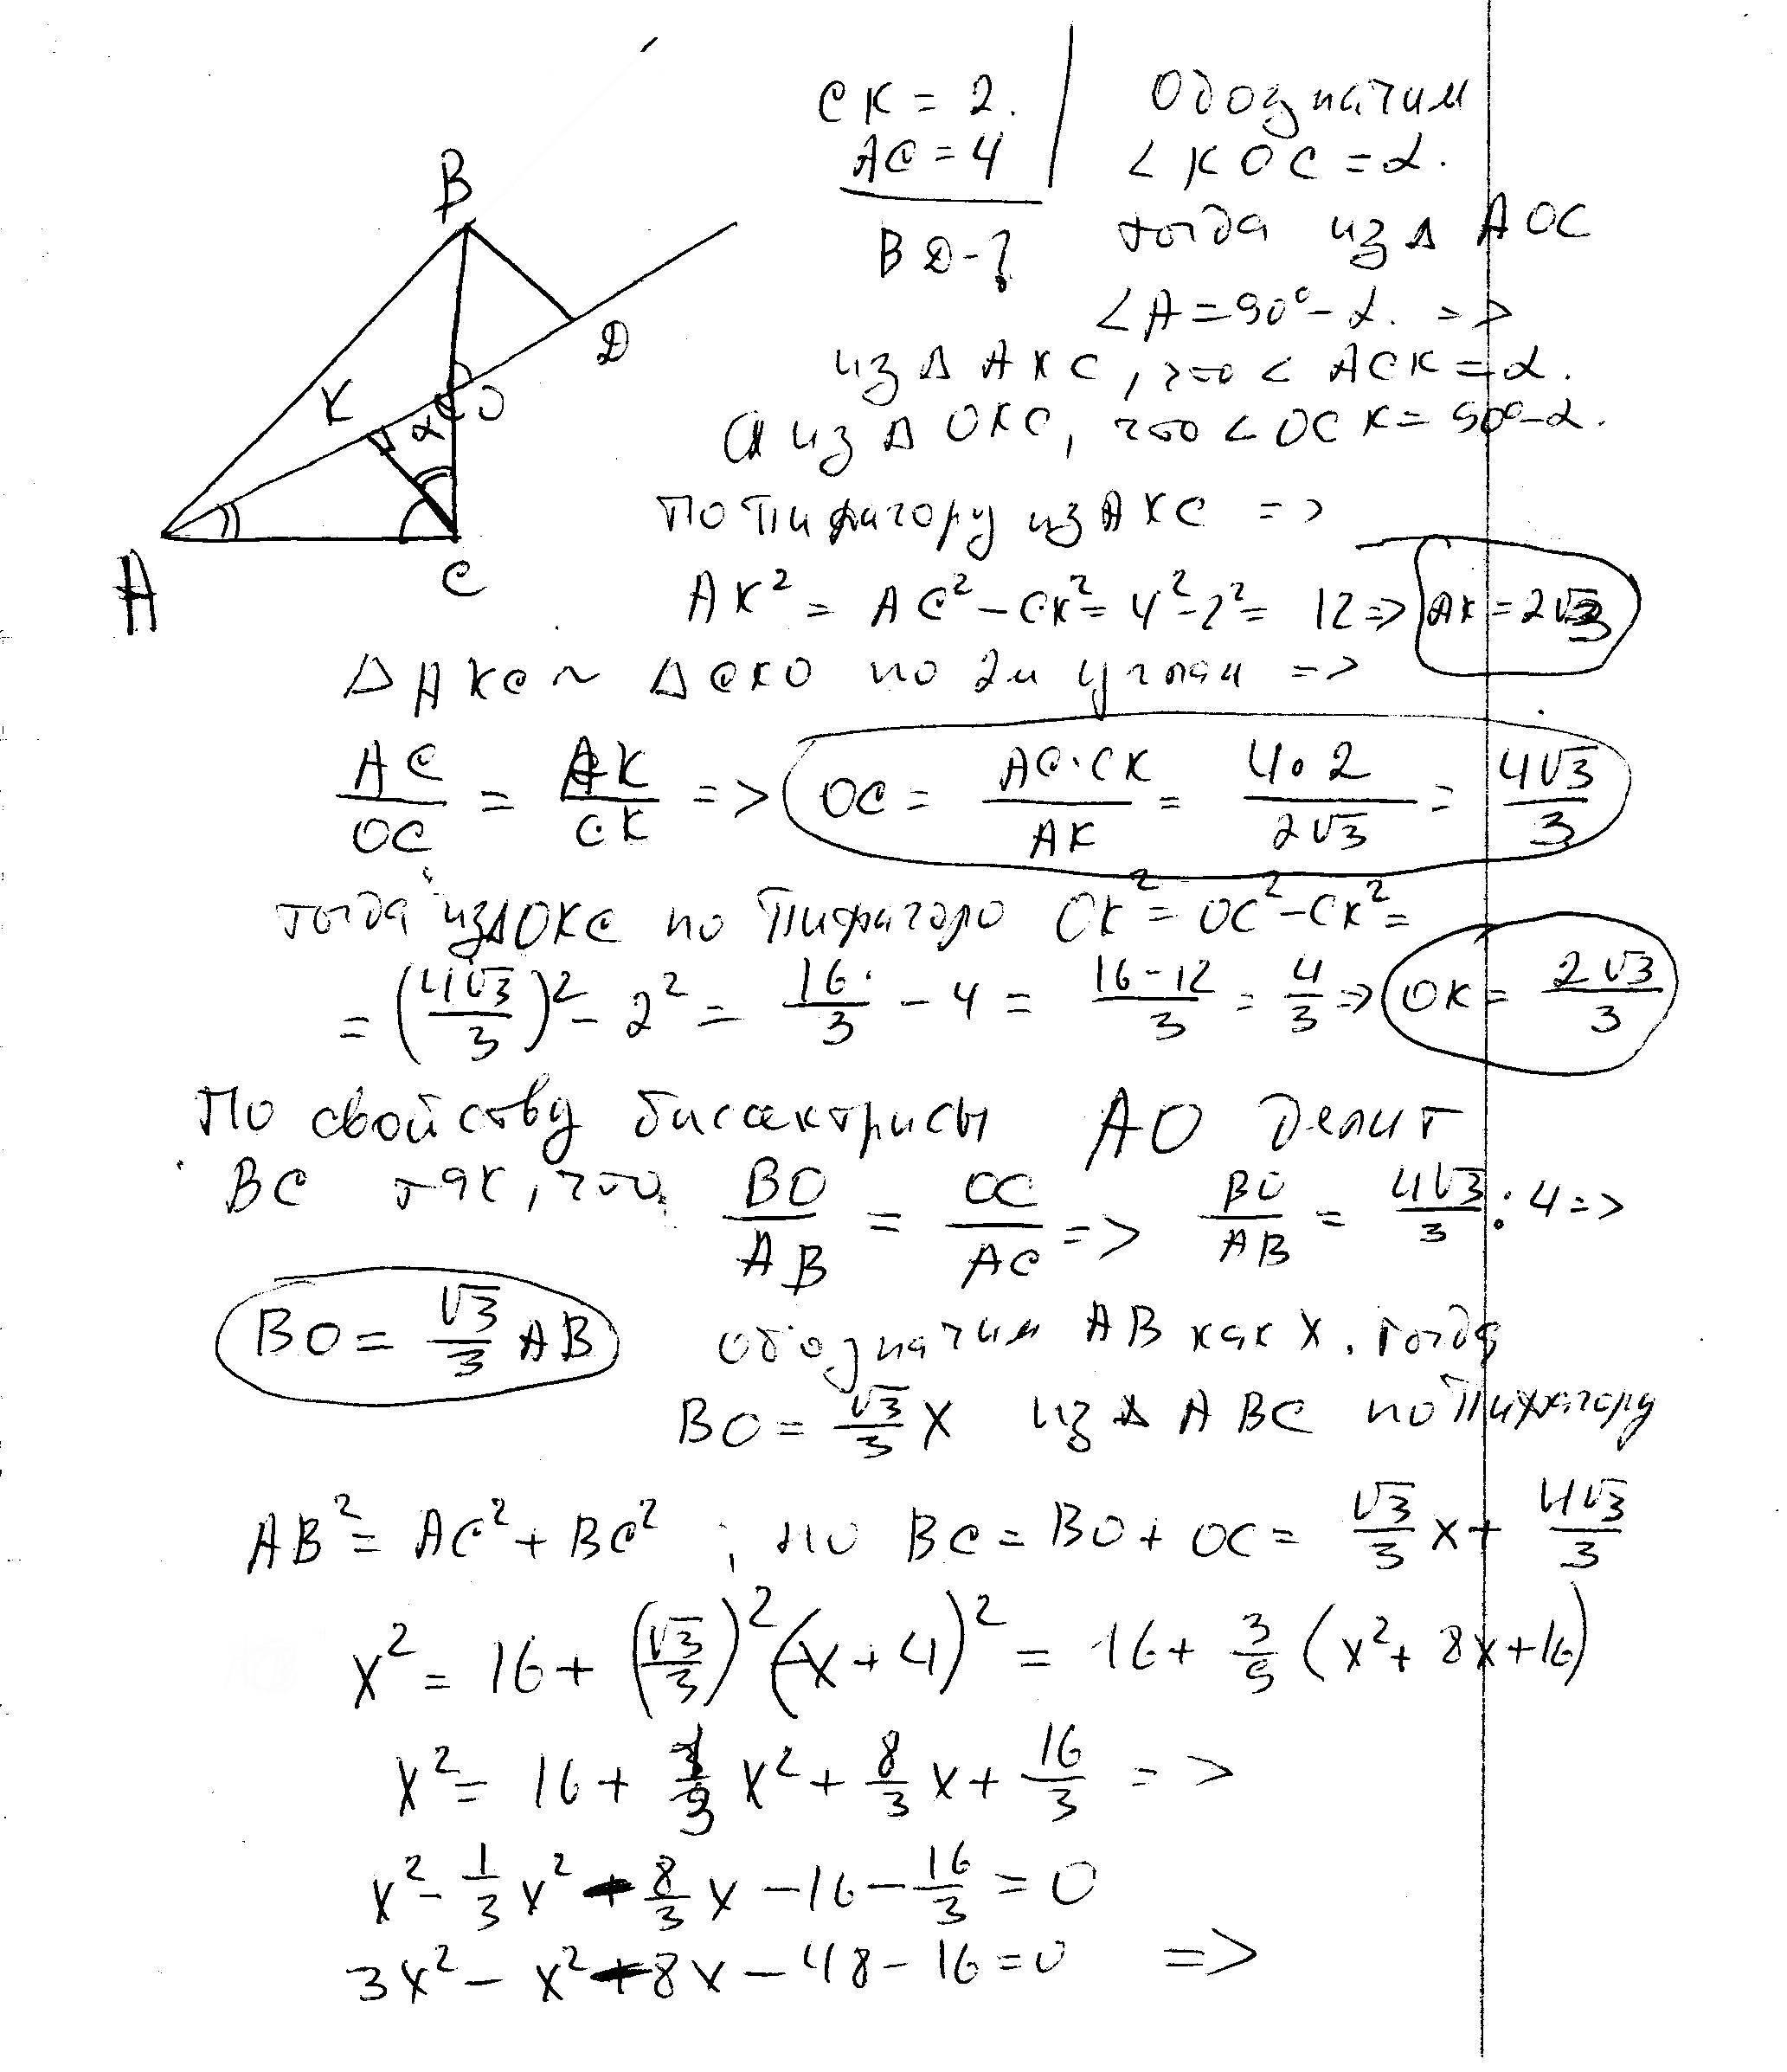 CK = 2.
AC = 4
BD - ?
Обозначим
∠KOC = α.
тогда из Δ AOC
∠A = 90° - α. =>
из Δ AKC, что ∠ACK = α.
а из Δ OKC, что ∠OCK = 90° - α.
По Пифагору из AKC =>
AK² = AC² - CK² = 4² - 2² = 12 => AK = 2√3
Δ AKC ~ Δ CKO по 2м углам =>
AC/OC = AK/CK => OC = AC·CK/AK = 4·2/2√3 = 4√3/3
тогда из Δ OKC по Пифагору OK² = OC² - CK² =
= (4√3/3)² - 2² = 16/3 - 4 = 16-12/3 = 4/3 => OK = 2√3/3
По свойству биссектрисы AO делит
BC так, что BO/AB = OC/AC => BO/AB = 4√3/3 : 4 =>
BO = √3/3 AB обозначим AB как X. тогда
BO = √3/3 X из Δ ABC по Пифагору
AB² = AC² + BC², но BC = BO + OC = √3/3 X + 4√3/3
X² = 16 + (√3/3)² (X + 4)² = 16 + 3/9 (X² + 8X + 16)
X² = 16 + 1/3 X² + 8/3 X + 16/3 =>
X² - 1/3 X² - 8/3 X - 16 - 16/3 = 0
3X² - X² - 8X - 48 - 16 = 0 =>
B
D
K
α
O
A
C